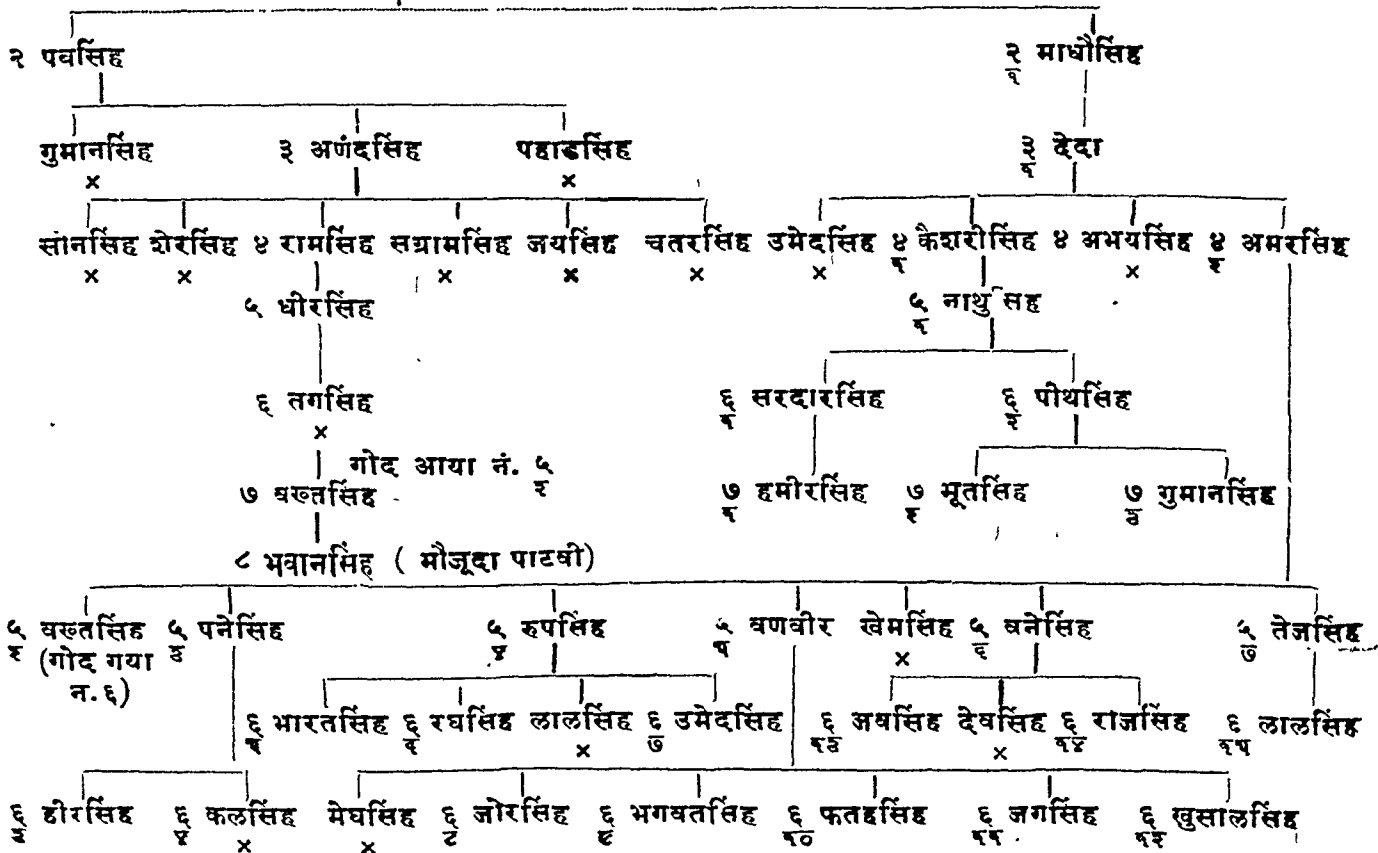 २ पवसिंह २/१ माधौसिंह
गुमानसिंह ३ अणंदसिंह पहाडसिंह ३/१ देदा
× ×
सोनसिंह शेरसिंह ४ रामसिंह सग्रामसिंह जयसिंह चतरसिंह उमेदसिंह ४/१ कैशरीसिंह ४ अभयसिंह ४/२ अमरसिंह
× × × × × × ×
५ धीरसिंह ५/१ नाथुसिंह
६ तगसिंह ६/१ सरदारसिंह ६/२ पीथसिंह
×
गोद आया नं. ५/२
७ वख्तसिंह ७/१ हमीरसिंह ७/२ भूतसिंह ७/३ गुमानसिंह
८ भवानसिंह ( मौजूदा पाटवी)
५/२ वख्तसिंह ५/३ पनेसिंह ५/४ रुपसिंह ५/५ वणवीर खेमसिंह ५/६ वनेसिंह ५/७ तेजसिंह
(गोद गया ×
न.६)
भारतसिंह रघसिंह लालसिंह ६/७ उमेदसिंह ६/१३ अवसिंह देवसिंह ६/१४ राजसिंह ६/१५ लालसिंह
× ×
हीरसिंह कलसिंह मेघसिंह ६/८ जोरसिंह ६/९ भगवतसिंह ६/१० फतहसिंह ६/११ जगसिंह ६/१२ खुसालसिंह
× ×